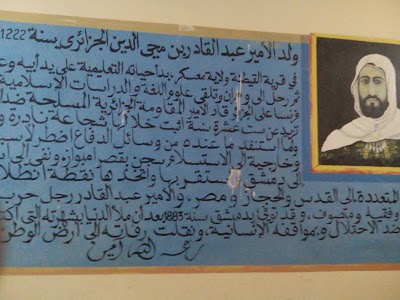 ولد الأمير عبد القادر بن محي الدين الجزائري سنة 1222
في قرية القطنة ولاية معسكر، بدأ حياته التعليمية على يد أبيه
ثم رحل إلى وهران وتلقى علوم اللغة و الدراسات الإسلامية
فرنسا على الجزائر قاد الأمير المقاومة الجزائرية المسلحة ضد
تزيد عن ست عشرة سنة أثبت خلالها شجاعة نادرة
وما استنفد ما عنده من وسائل الدفاع اضطر
وخارجية إلى الاستسلام سجن بقصر امبواز، و نفي إلى
إلى دمشق واستقر بها واتخذها نقطة
المتعددة إلى القدس والحجاز و مصر، والأمير عبد القادر رجل حرب
وفقيه و متصوف، و قد توفي بدمشق سنة 1883 بعد أن ملأ الدنيا بشهرته التي
ضد الاحتلال و بمواقفه الإنسانية، و نقلت رفاته إلى أرض الوطن
رحمه الله آمين